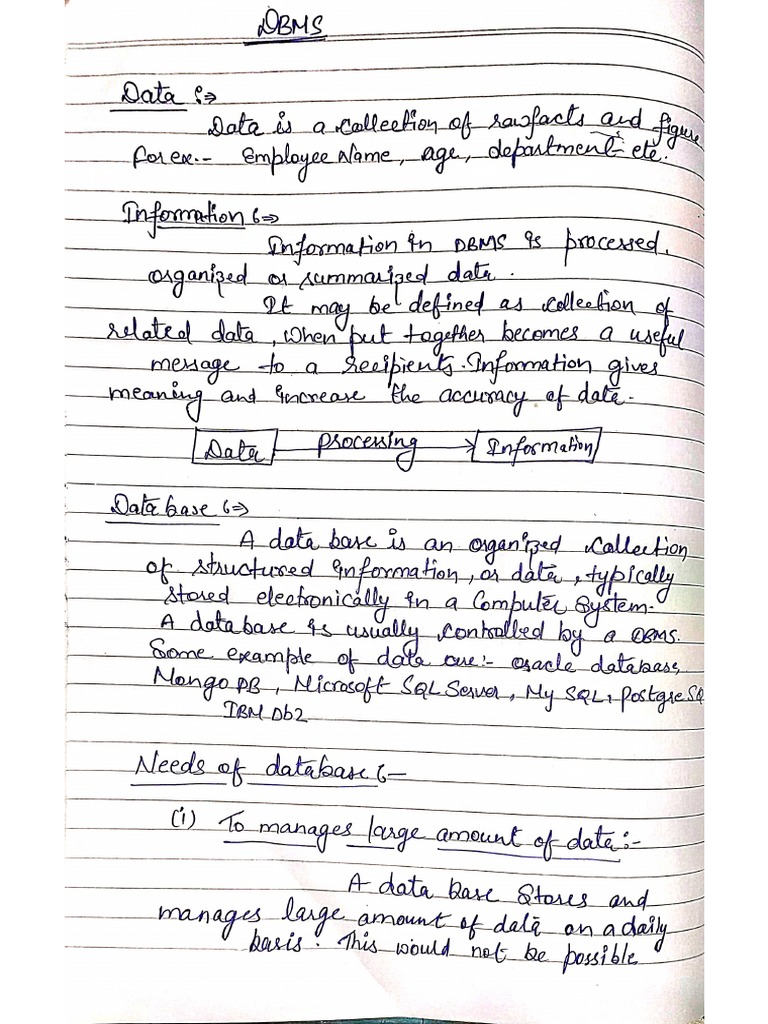 DBMS
Data :⇒
Data is a collection of rawfacts and figure
for ex.- Employee Name, age, department etc.
Information :⇒
Information in DBMS is processed,
organized or summarized data.
It may be defined as collection of
related data, when put together becomes a useful
message to a recipients. Information gives
meaning and increase the accuracy of data.
Data processing Information
Data base :⇒
A data base is an organized collection
of structured information, or data, typically
stored electronically in a Computer System.
A database is usually controlled by a DBMS.
Some example of data are:- oracle database,
Mongo DB, Microsoft SQL Server, My SQL, PostgreSQ
IBM Db2
Needs of database :-
(i) To manages large amount of data:-
A data base stores and
manages large amount of data on a daily
basis. This would not be possible